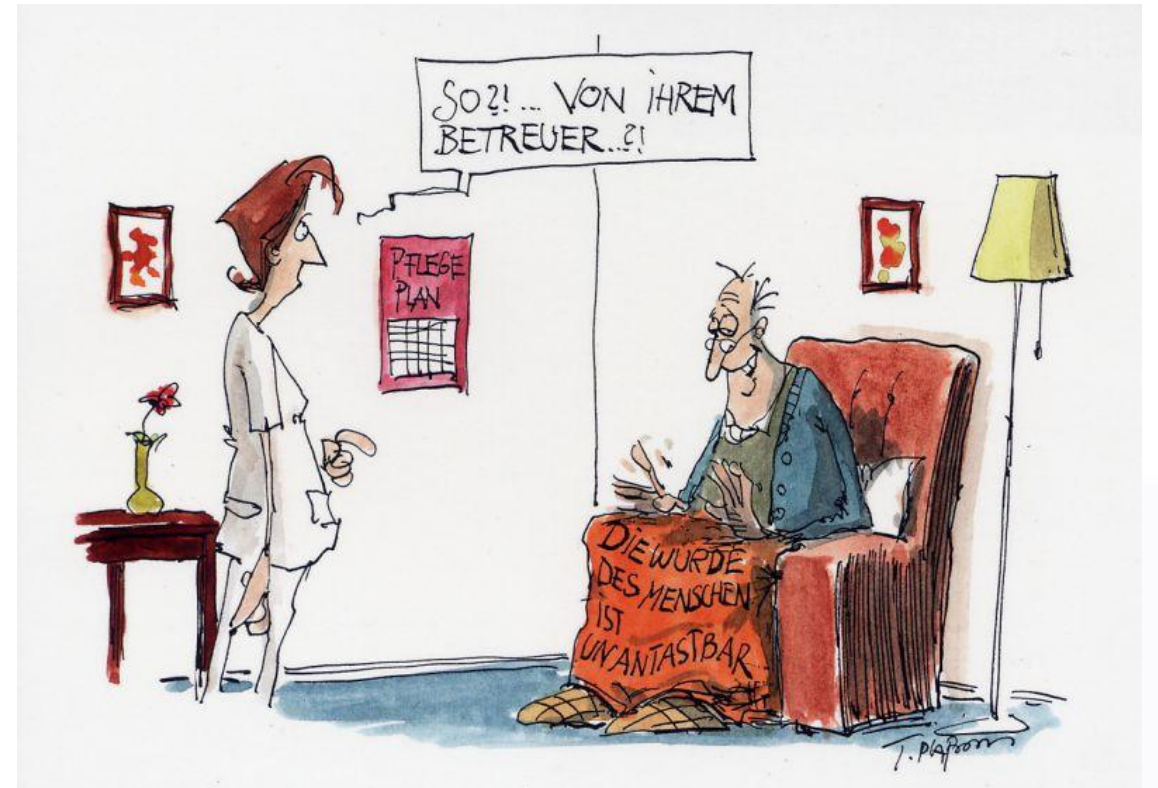 SO?!... VON IHREM
BETREUER...?!
PFLEGE
PLAN
DIE WÜRDE
DES MENSCHEN
IST
UNANTASTBAR...